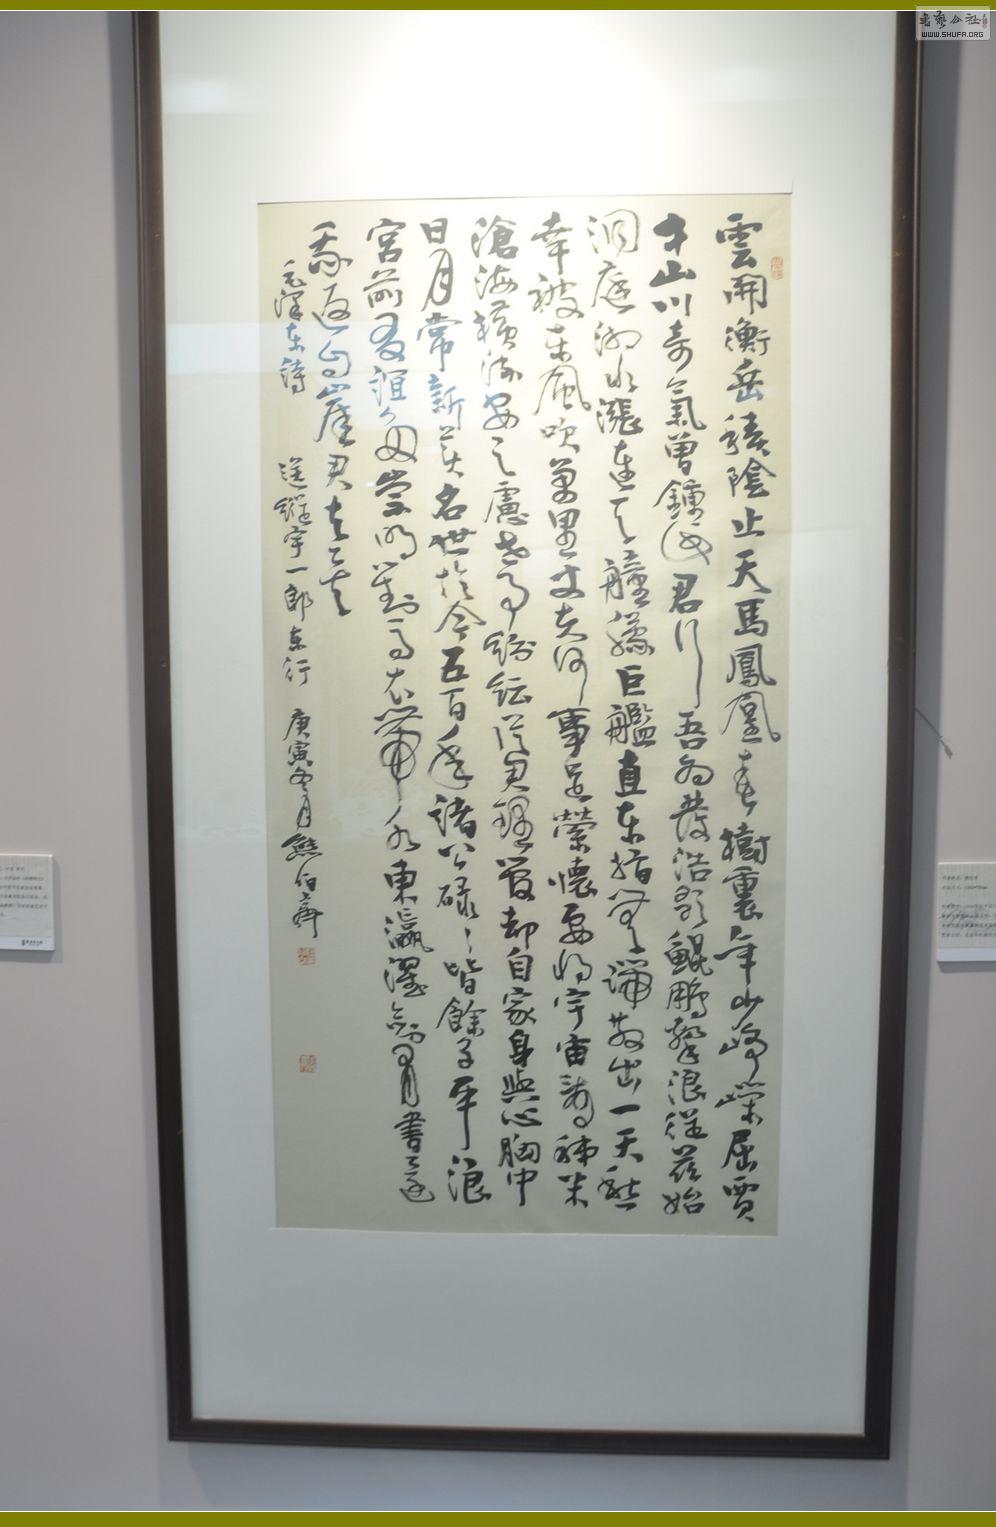 雲開衡岳積陰止天馬鳳凰春樹裏年少崢嶸屈賈
才山川奇氣曾鍾此君行吾為發浩歌鯤鵬擊浪從茲始
洞庭湘水漲連天艟艨巨艦直東指無端散出一天愁
幸被東風吹萬里丈夫何事足縈懷要將宇宙看稊米
滄海橫流安足慮世事紛紜從君理管却自家身與心胸中
日月常新美名世於今五百年諸公碌〻皆餘子平浪
宮前友誼多崇明對馬衣帶水東瀛濯劍有書還
我返自崖君去矣
毛澤東詩 送縱宇一郎東行 庚寅冬月熊伯齊
WWW.SHUFA.ORG